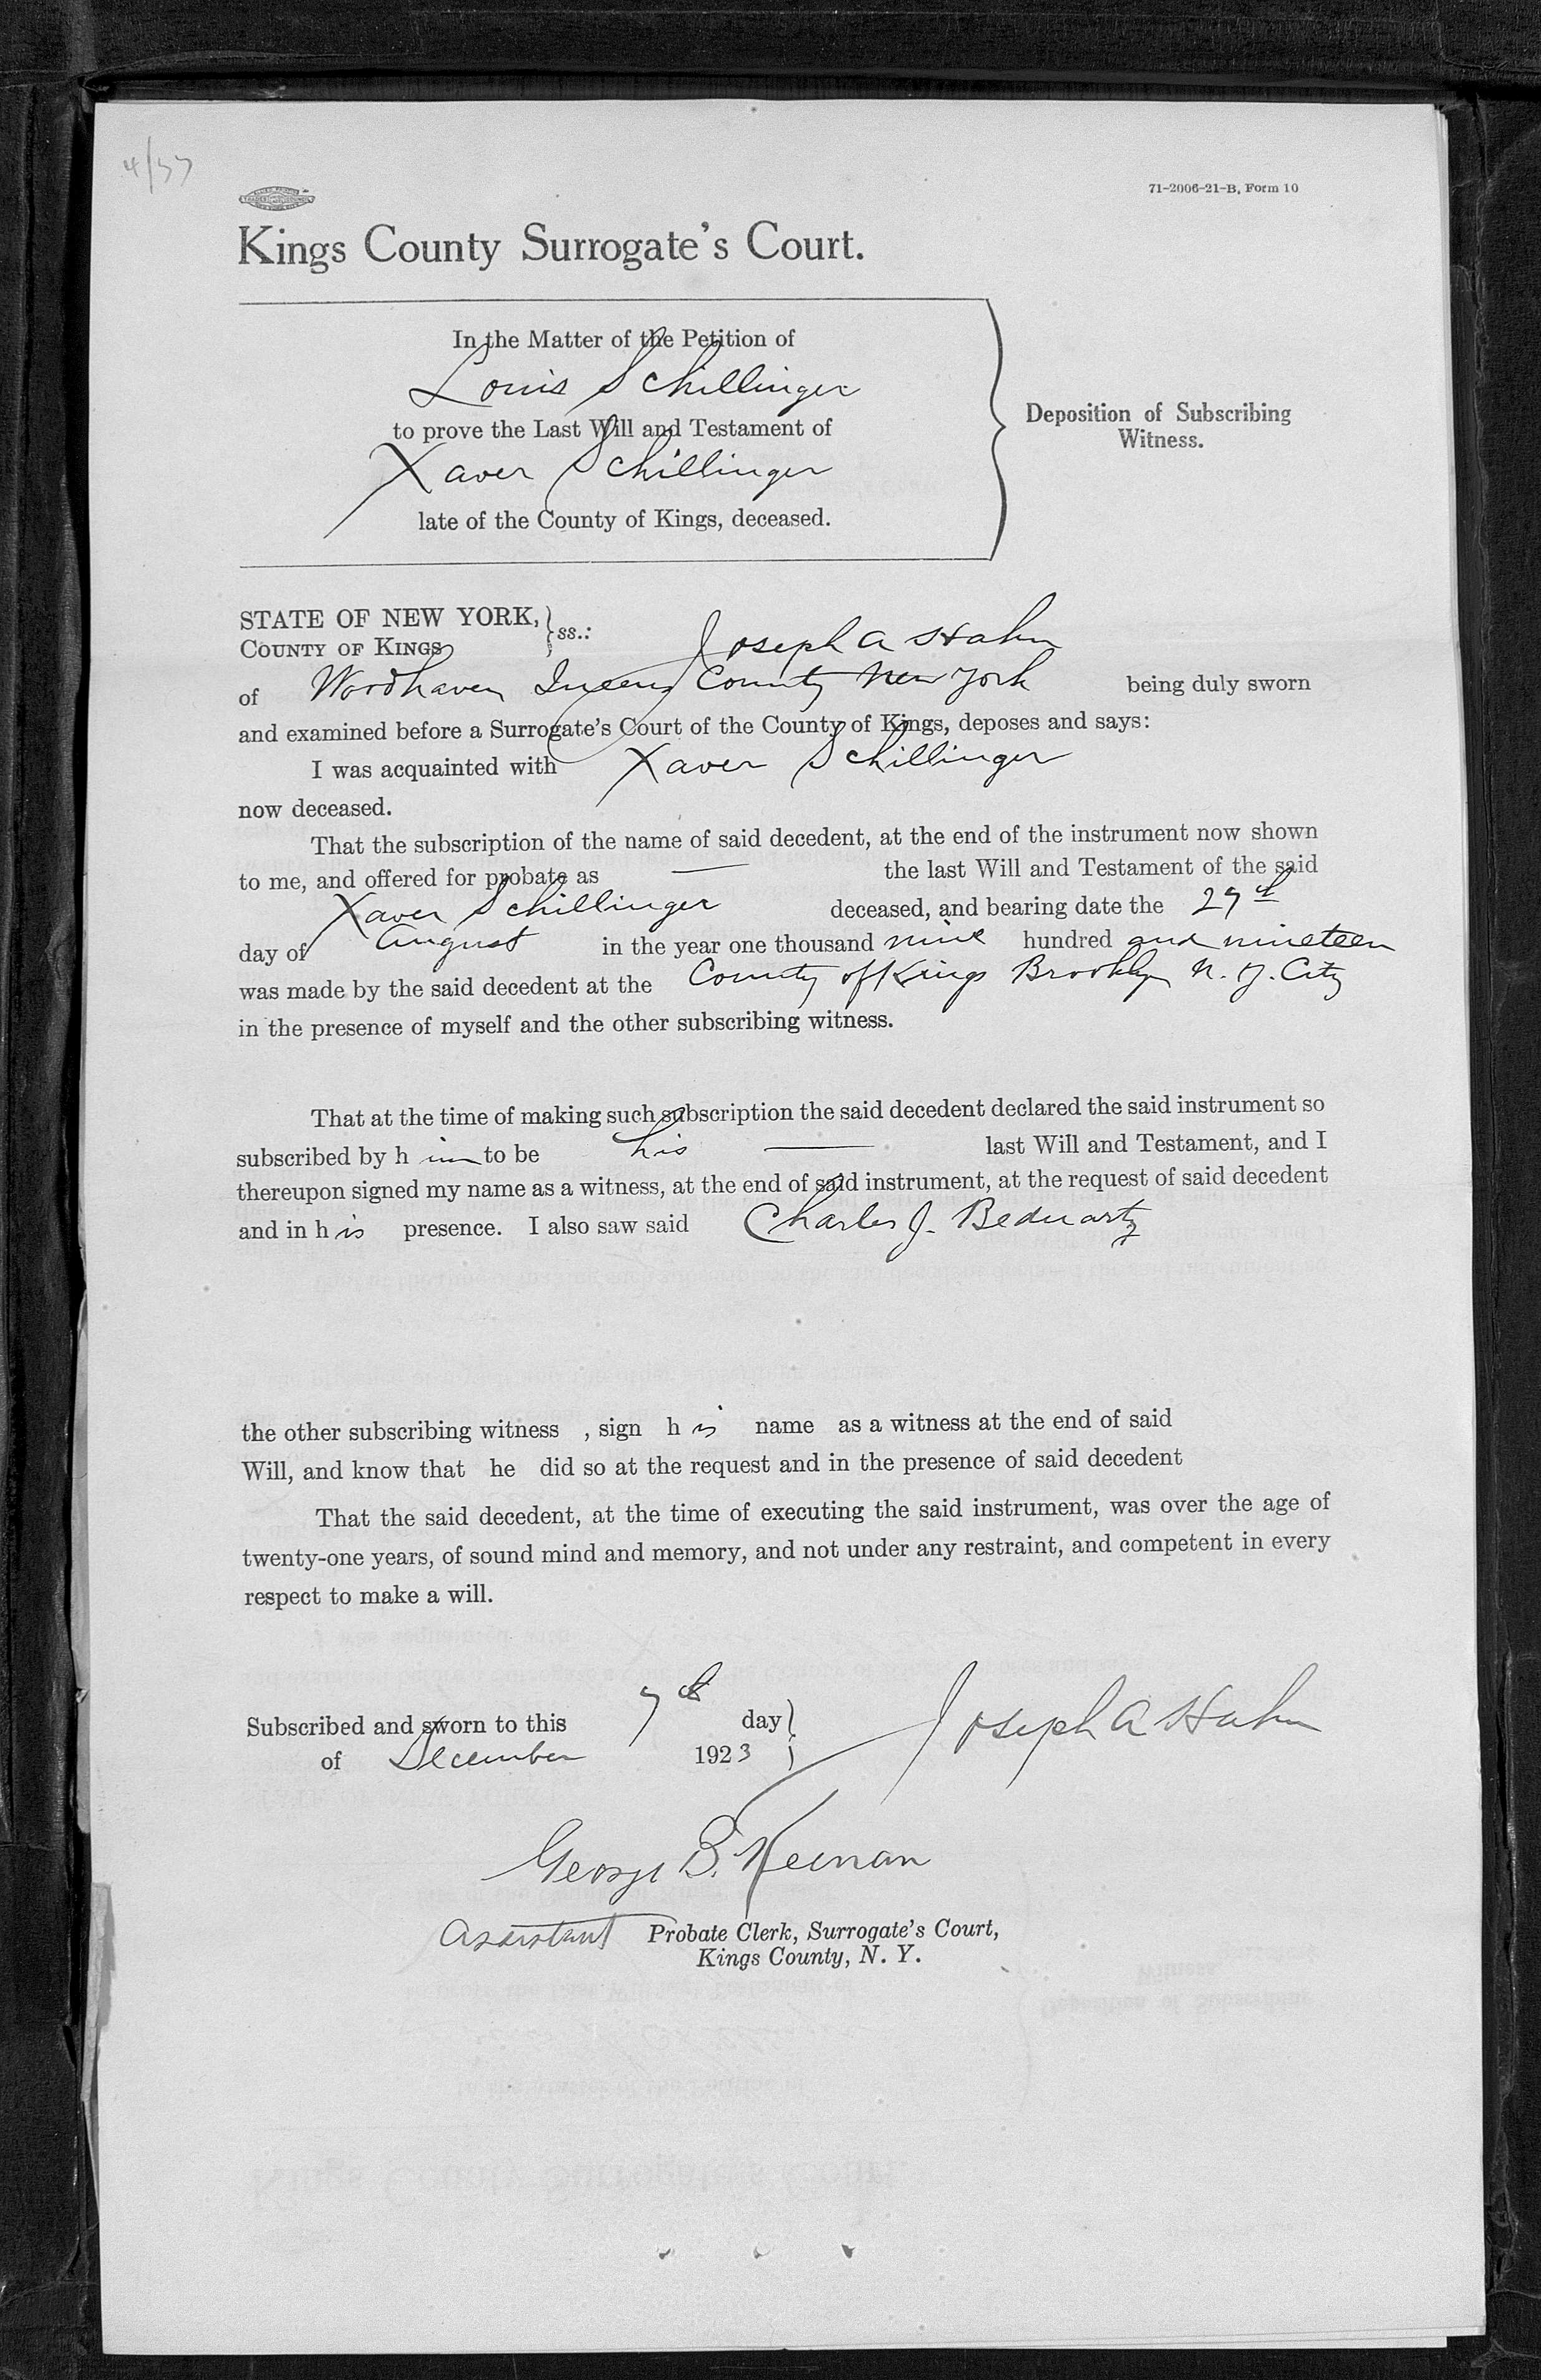 4/37
71-2006-21-B, Form 10
Kings County Surrogate's Court.
In the Matter of the Petition of
Louis Schillinger
to prove the Last Will and Testament of
Xaver Schillinger
late of the County of Kings, deceased.
Deposition of Subscribing
Witness.
STATE OF NEW YORK,
COUNTY OF KINGS
ss.:
Joseph A Hahn
of Woodhaven Queens County New York being duly sworn
and examined before a Surrogate's Court of the County of Kings, deposes and says:
I was acquainted with Xaver Schillinger
now deceased.
That the subscription of the name of said decedent, at the end of the instrument now shown
to me, and offered for probate as — the last Will and Testament of the said
Xaver Schillinger deceased, and bearing date the 29th
day of August in the year one thousand nine hundred and nineteen
was made by the said decedent at the County of Kings Brooklyn N. Y. City
in the presence of myself and the other subscribing witness.
That at the time of making such subscription the said decedent declared the said instrument so
subscribed by him to be his — last Will and Testament, and I
thereupon signed my name as a witness, at the end of said instrument, at the request of said decedent
and in his presence. I also saw said Charles J. Bednartz
the other subscribing witness , sign his name as a witness at the end of said
Will, and know that he did so at the request and in the presence of said decedent
That the said decedent, at the time of executing the said instrument, was over the age of
twenty-one years, of sound mind and memory, and not under any restraint, and competent in every
respect to make a will.
Subscribed and sworn to this 7th day
of December 1923
Joseph A Hahn
George B. Keenan
Assistant Probate Clerk, Surrogate's Court,
Kings County, N. Y.